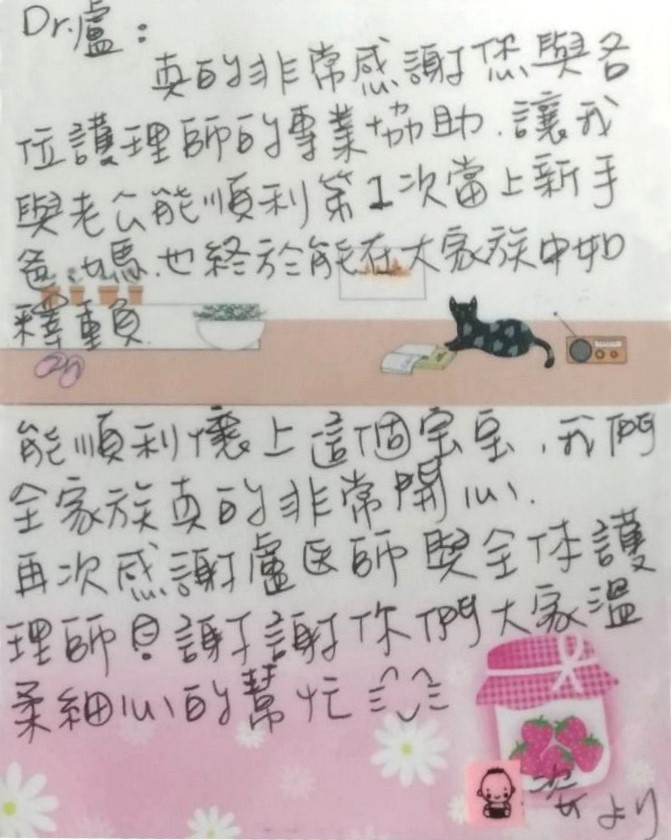 Dr.盧：
真的非常感謝您與各
位護理師的專業協助.讓我
與老公能順利第1次當上新手
爸.媽.也終於能在大家族中如
釋重負
能順利懷上這個宝宝,我們
全家族真的非常開心.
再次感謝盧医師與全体護
理師員謝謝你們大家溫
柔細心的幫忙
姿より